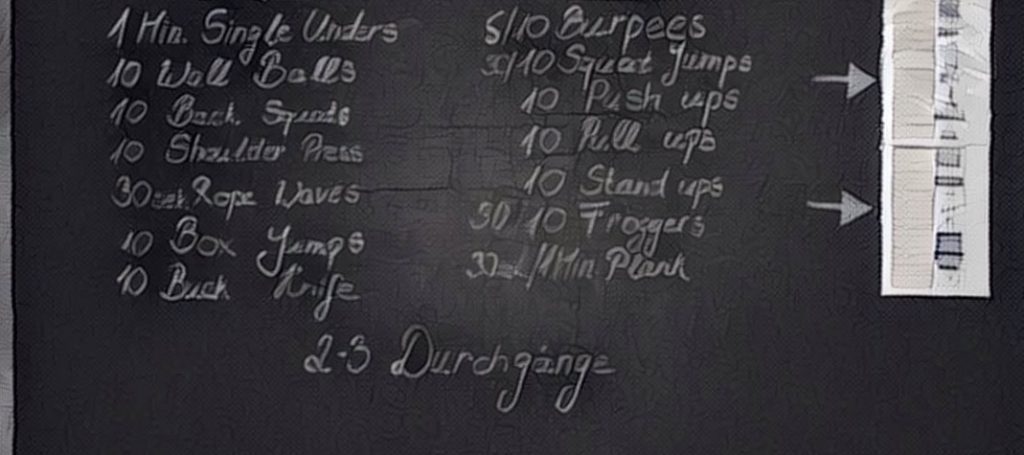 1 Min. Single Unders
10 Wall Balls
10 Back Squats
10 Shoulder Press
30sek. Rope Waves
10 Box Jumps
10 Buck Knife
5/10 Burpees
10 Squat Jumps
10 Push ups
10 Pull ups
10 Stand ups
10 Froggers
30sek/1Min Plank
2-3 Durchgänge